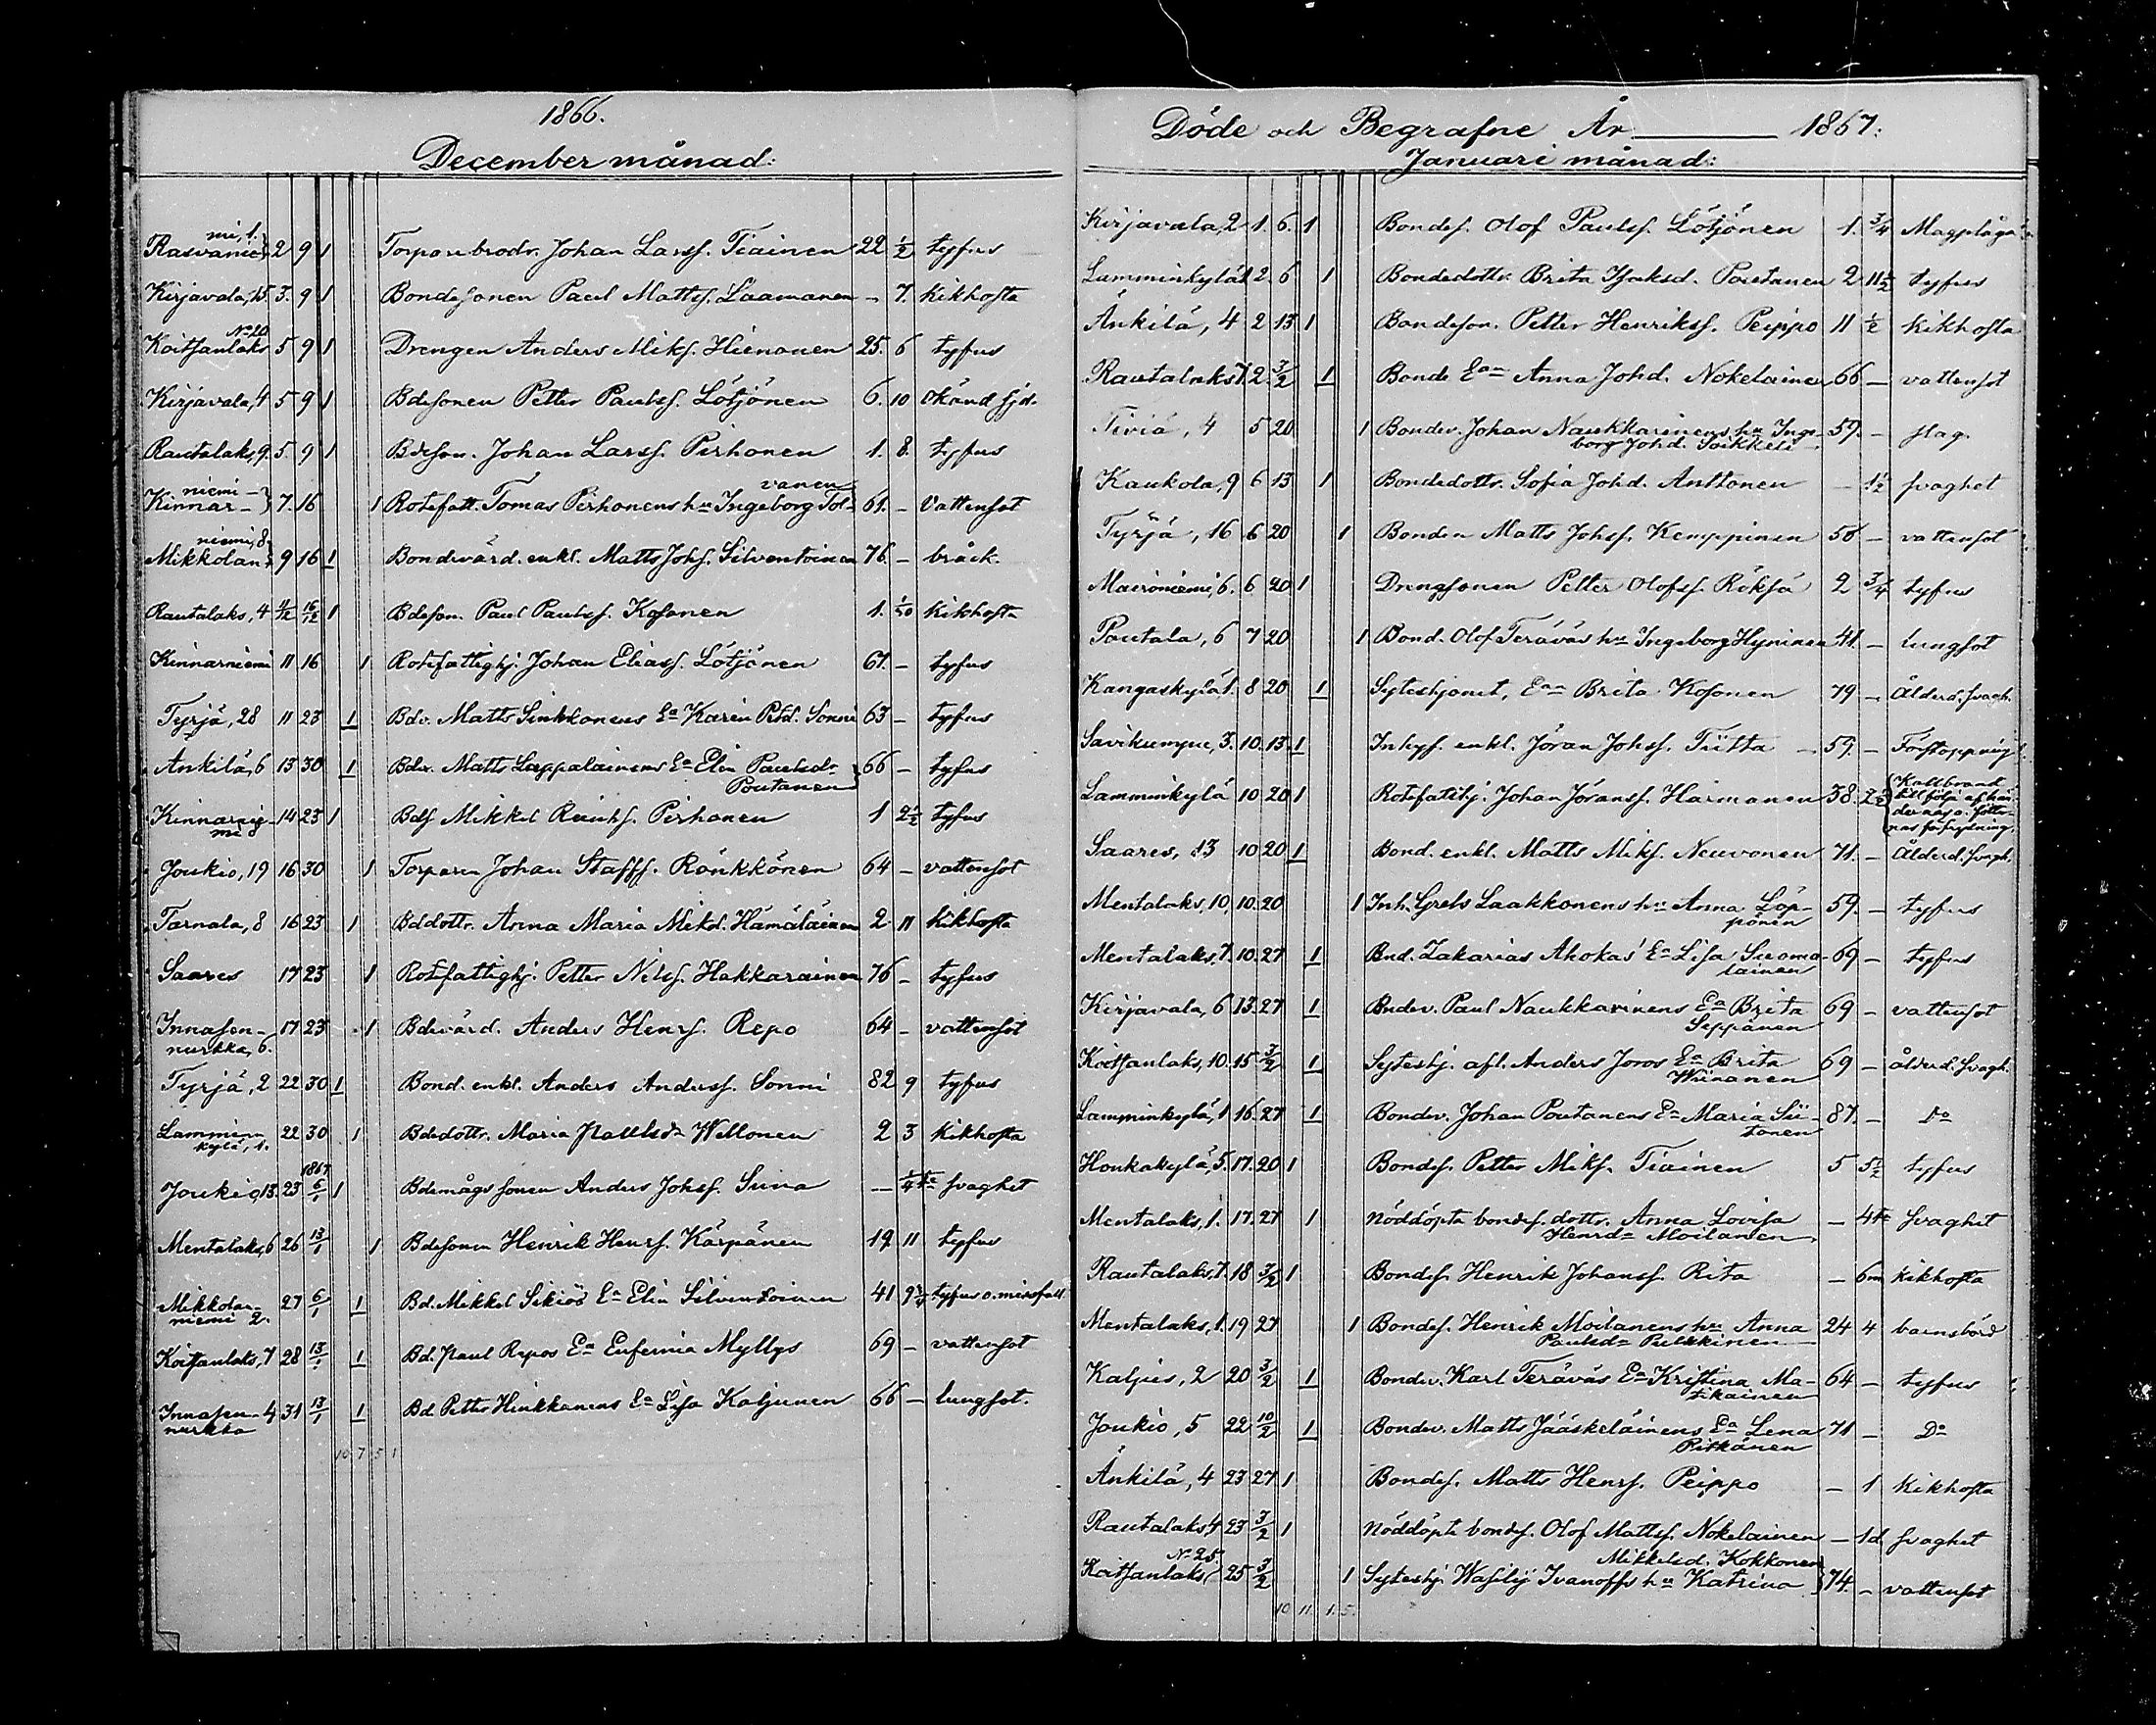 1866.
December månad:
Rasvanie- mi, 1. 2 9 1 Torparebrodr. Johan Larss. Tiainen 22 1/2 tyfus
Kirjavala, 15. 3. 9 1 Bondesonen Paul Matts. Laamanen - 7. Kikhosta
Koitsanlaks No 20 5 9 1 Drengen Anders Miks. Hienonen 25. 6 tyfus
Kirjavala, 4 5 9 1 Bdesonen Petter Paulss. Lötjönen 6. 10 Okänd sjd.
Rautalaks, 9. 5. 9 1 Bdeson. Johan Larss. Pirhonen 1. 8. tyfus
Kinnar- niemi- 7. 16 1 Rotefatt. Tomas Pirhonens hu Ingeborg Tol- vanen 61. - Vattensot
Mikkolan- niemi, 8 9 16 1 Bondevärd. enkl. Matts Johs. Silventoinen 76. - bråck.
Rautalaks, 4 11/12 16/12 1 Bdeson. Paul Paulss. Kosonen 1. 1/10 Kikhosta
Kinnarniemi 11 16 1 Rotefattighj. Johan Eliass. Lötjönen 61. - tyfus
Tyrjä, 28 11 23 1 Bdv. Matts Sinkkonens Ea Karin Petd. Sonni 63 - tyfus
Ankilä, 6 13 30 1 Bdv. Matts Lappalainens Ea Elin Paulsd- Poutanen 66 - tyfus
Kinnarnie- mi 8 14 23 1 Bds Mikkel Reinhs. Pirhonen 1 2 1/2 tyfus
Joukio, 19 16 30 1 Torparen Johan Staffs. Rönkkönen 64 - vattensot
Tarnala, 8 16 23 1 Bddottr. Anna Maria Mikd. Hämäläinen 2 11 kikhosta
Saares 17 23 1 Rotefattighj. Petter Nilss. Hakkarainen 76 - tyfus
Innasen- nurkka, 6. 17 23 1 Bdevärd. Anders Henrs. Repo 64 - vattensot
Tyrjä, 2 22 30 1 Bond. enkl. Anders Anderss. Sonni 82 9 tyfus
Lammin- kylä, 1. 22 30 1 Bdedottr. Maria Paulsd. Wellonen 2 3 Kikhosta
Joukio, 13. 23 1867 6/1 1 Bdemågs sonen Anders Johss. Suna - 1/4 svaghet
Mentalaks, 6 26 13/1 1 Bdesonen Henrik Henrs. Kärpänen 19 11 tyfus
Mikkolan- niemi 2. 27 6/1 1 Bd. Mikkel Sikiös Ea Elin Silventoinen 41 9 3/4 tyfus o. missfall
Koitsanlaks, 7 28 13/1 1 Bd. Paul Repos Ea Eufemia Myllys 69 - vattensot
Innasen- nurkka 4, 31 13/1 1 Bd Petter Hinkkanens Ea Lisa Kaljunen 66 - lungsot.
10 7 5 1
Döde och Begrafne År 1867:
Januari månad:
Kirjavala, 2 1. 6. 1 Bondes. Olof Paulss. Lötjönen 1. 3/4 Magplåga
Lamminkylä 1 2. 6 1 Bondedottr. Brita Isaksd. Poutanen 2 11 1/2 tyfus
Änkilä, 4 2 13 1 Bondeson. Petter Henrikss. Peippo 11 1/2 Kikhosta
Rautalaks 7. 2. 3/2 1 Bonde Ea Anna Johd. Nokelainen 66 - vattensot
Tiviä, 4 5 20 1 Bondev. Johan Naukkarinens hu Inge- borg Johd. Soikkeli 59. - slag.
Kaukola, 9 6 13 1 Bondedottr. Sofia Johd. Anttonen - 1 1/2 svaghet
Tyrjä, 16 6 20 1 Bonden Matts Johss. Kemppinen 58 - vattensot
Maironiemi, 6. 6 20 1 Drengsonen Petter Olofss. Röksä 2 3/4 tyfus
Poutala, 6 7 20 1 Bond. Olof Teräväs hu Ingeborg Hyninen 41. - lungsot
Kangaskylä 1. 8 20 1 Syteshjonet, Ea Brita Kosonen 79 - Ålderd. svagh.
Savikumpu, 3. 10. 13 1 Inhys. enkl. Jöran Johss. Tiitta 59. - Förstoppning
Lamminkylä 10 20 1 Rotefatthj. Johan Jöranss. Haimonen 38. 2 1/2 Kallbrand till följe af händernas o. fötternas förfrysning.
Saares, 13 10 20 1 Bond. enkl. Matts Miks. Neuvonen 71. - Ålderd. svagh.
Mentalaks, 10, 10. 20 1 Inh. Grels Laakkonens hu Anna Löp- pönen 59. - tyfus
Mentalaks, 7. 10. 27 1 Bnd. Zakarias Ahokas' Ea Lisa Suoma- lainen 69 - tyfus
Kirjavala, 6 13. 27 1 Bndev. Paul Naukkarinens Ea Brita Seppänen 69 - vattensot
Koitsanlaks, 10. 15 3/2 1 Syteshj. afl. Anders Joros Ea Brita Wänänen 69 - ålderd. svagh.
Lamminkylä, 1 16. 27 1 Bondev. Johan Poutanens Ea Maria Sii- tonen 87. - Do
Honkakylä, 5. 17. 20 1 Bondes. Petter Miks. Tiainen 5 5 1/2 tyfus
Mentalaks, 1. 17. 27 1 Nöddöpta bondes. dottr. Anna Lovisa Henrd- Moilanen - 4 svaghet
Rautalaks, 7. 18 3/2 1 Bondes. Henrik Johanss. Rita - 6m Kikhosta
Mentalaks, 1. 19 27 1 Bondes. Henrik Moilanens hu Anna Paulsd- Pulkkinen 24 4 barnsbörd
Kaljus, 2 20 3/2 1 Bondev. Karl Teräväs Ea Kristina Ma- tikainen 64 - tyfus
Joukio, 5 22 10/2 1 Bondev. Matts Jääskeläinens Ea Lena Pitkänen 71 - Do
Änkilä, 4 23 27 1 Bondes. Matts Henrs. Peippo - 1 Kikhosta
Rautalaks 4 23 3/2 1 Nöddöpta bondes. Olof Mattss. Nokelainen - 1d svaghet
Koitsanlaks No 25. 25 3/2 1 Syteshj. Wasilij Ivanoffs hu Katrina Mikkelsd. Kokkonen 74. - vattensot
10 11. 1. 5.